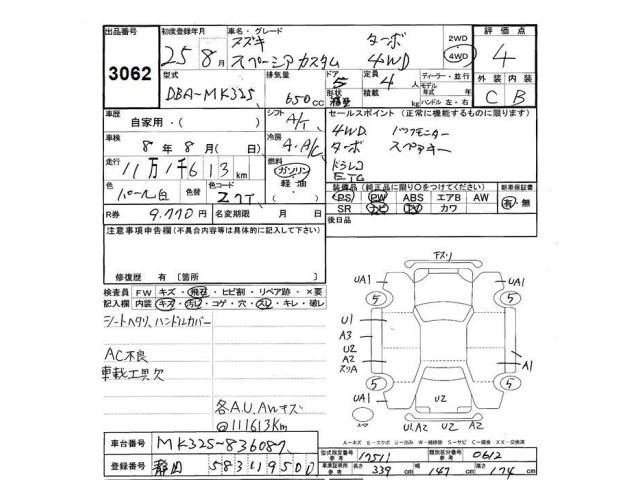 出品番号 初度登録年月 車名・グレード 2WD 評価点
3062 25年8月 スズキ ターボ
スペーシアカスタム 4WD 4WD 4
型式 排気量 ドア 定員 ディーラー・並行 外装 内装
DBA-MK32S 650cc 5 4人 モデル年式 年 C B
形状 積載 kg ハンドル 左・右
車歴 自家用・( ) シフト A/T セールスポイント (正常に機能するものに限ります)
車検 8年8月( 日) 冷房 A・A/C 4WD バックモニター
走行 11万1千613km 燃料 ガソリン ターボ スペアキー
軽油 ドラレコ
色 パール白 色替 色コード Z7T ETC
装備品 (純正品に限り〇をつけてください) 新車保証書
PS PW ABS エアB AW 有・無
R券 9,770円 名変期限 月 日 SR ナビ TV カワ
注意事項申告欄(不具合内容等は具体的に記入して下さい) 後日品
修復歴 有 〔箇所 〕
検査員 FW キズ・飛石・ヒビ割・リペア跡・×要
記入欄 内装 キズ・汚レ・コゲ・穴・スレ・キレ・破レ
シートヘタリ、ハンドルカバー
AC不良
車載工具欠
各A.U,AWキズ
@111613Km
下スリ
UA1 UA1
5 5
U1
A3
U2
A2 A1
スリA
5 5
UA1 U2 UA1
スペア U1.A2 U2 A2
A－キズ E－エクボ U－凹み W－補修跡 S－サビ C－腐食 XX－交換済
車台番号 MK32S-836087
型式指定番号 参考 17511 類別区分番号 参考 0612
登録番号 静岡 583い9500
車庫証明用 参考 長さ 339cm 幅 147cm 高さ 174cm